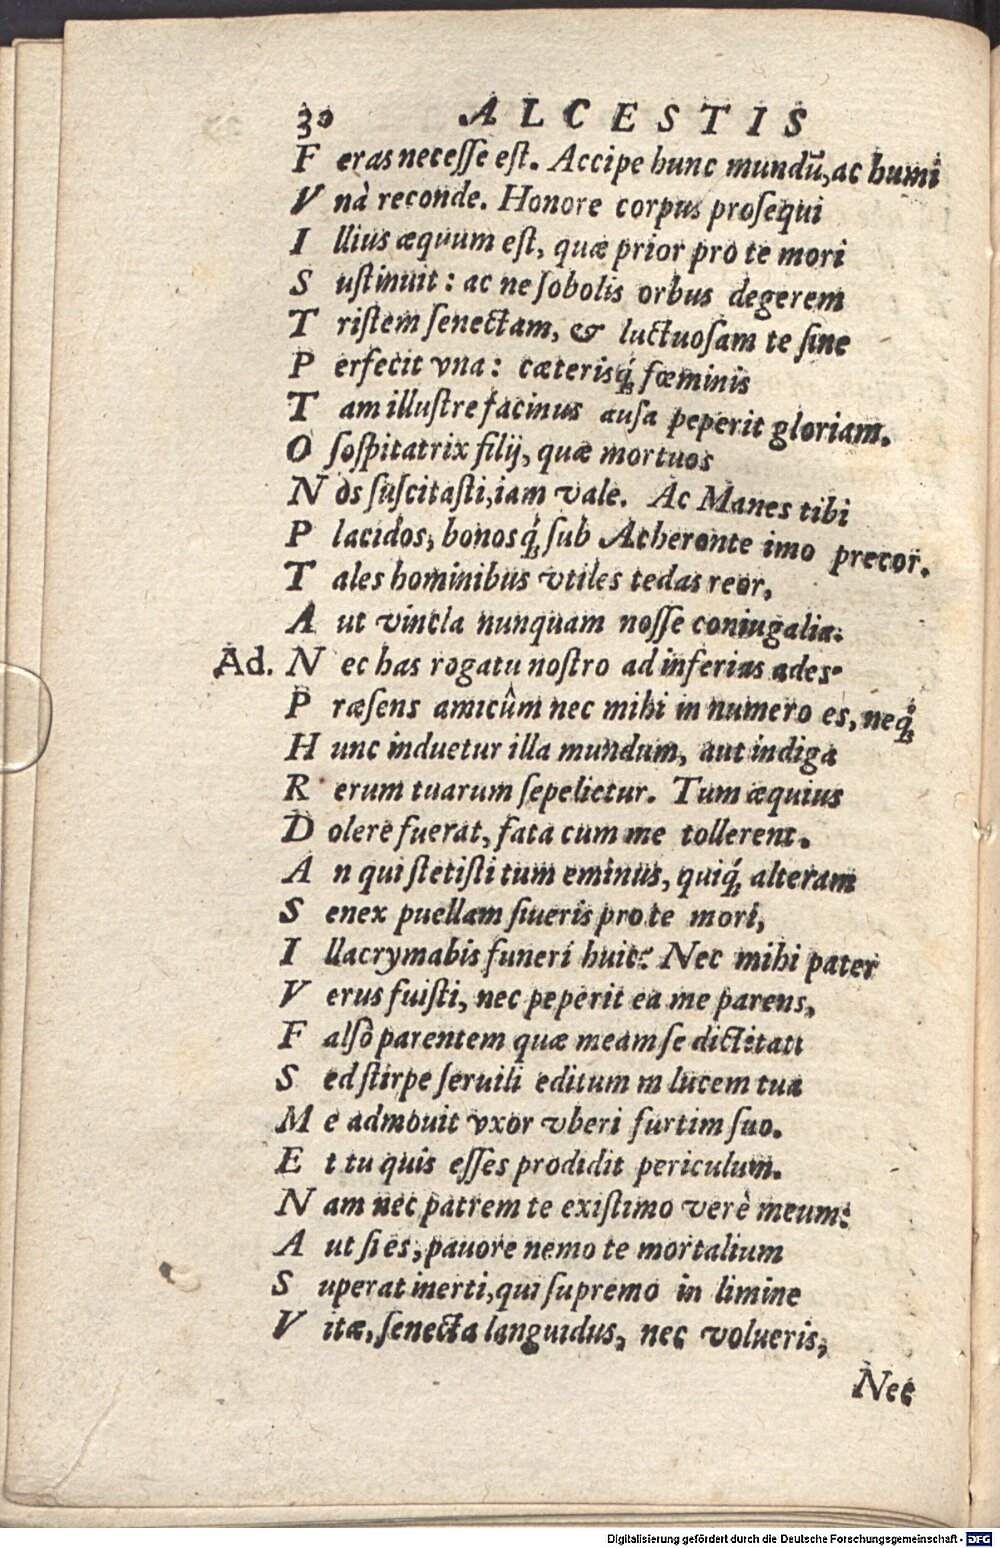 30 ALCESTIS
F eras necesse est. Accipe hunc mundũ, ac humi
V nà reconde. Honore corpus prosequi
I llius æquum est, quæ prior pro te mori
S ustinuit: ac ne sobolis orbus degerem
T ristem senectam, & luctuosam te sine
P erfecit vna: cæterisq́; fœminis
T am illustre facinus ausa peperit gloriam.
O sospitatrix filij, quæ mortuos
N os suscitasti, iam vale. Ac Manes tibi
P lacidos, bonosq́; sub Acheronte imo precor.
T ales hominibus vtiles tedas reor,
A ut vincla nunquam nosse coniugalia.
Ad. N ec has rogatu nostro ad inferias ades.
P ræsens amicûm nec mihi in numero es, neq́;
H unc induetur illa mundum, aut indiga
R erum tuarum sepelietur. Tum æquius
D olere fuerat, fata cum me tollerent.
A n qui stetisti tum eminus, quiq́; alteram
S enex puellam siueris pro te mori,
I llacrymabis funeri huic? Nec mihi pater
V erus fuisti, nec peperit ea me parens,
F alsò parentem quæ meam se dictitat:
S ed stirpe seruili editum in lucem tua
M e admouit vxor vberi furtim suo.
E t tu quis esses prodidit periculum.
N am nec patrem te existimo verè meum:
A ut si es, pauore nemo te mortalium
S uperat inerti, qui supremo in limine
V itæ, senecta languidus, nec volueris,
Nec
Digitalisierung gefördert durch die Deutsche Forschungsgemeinschaft - DFG